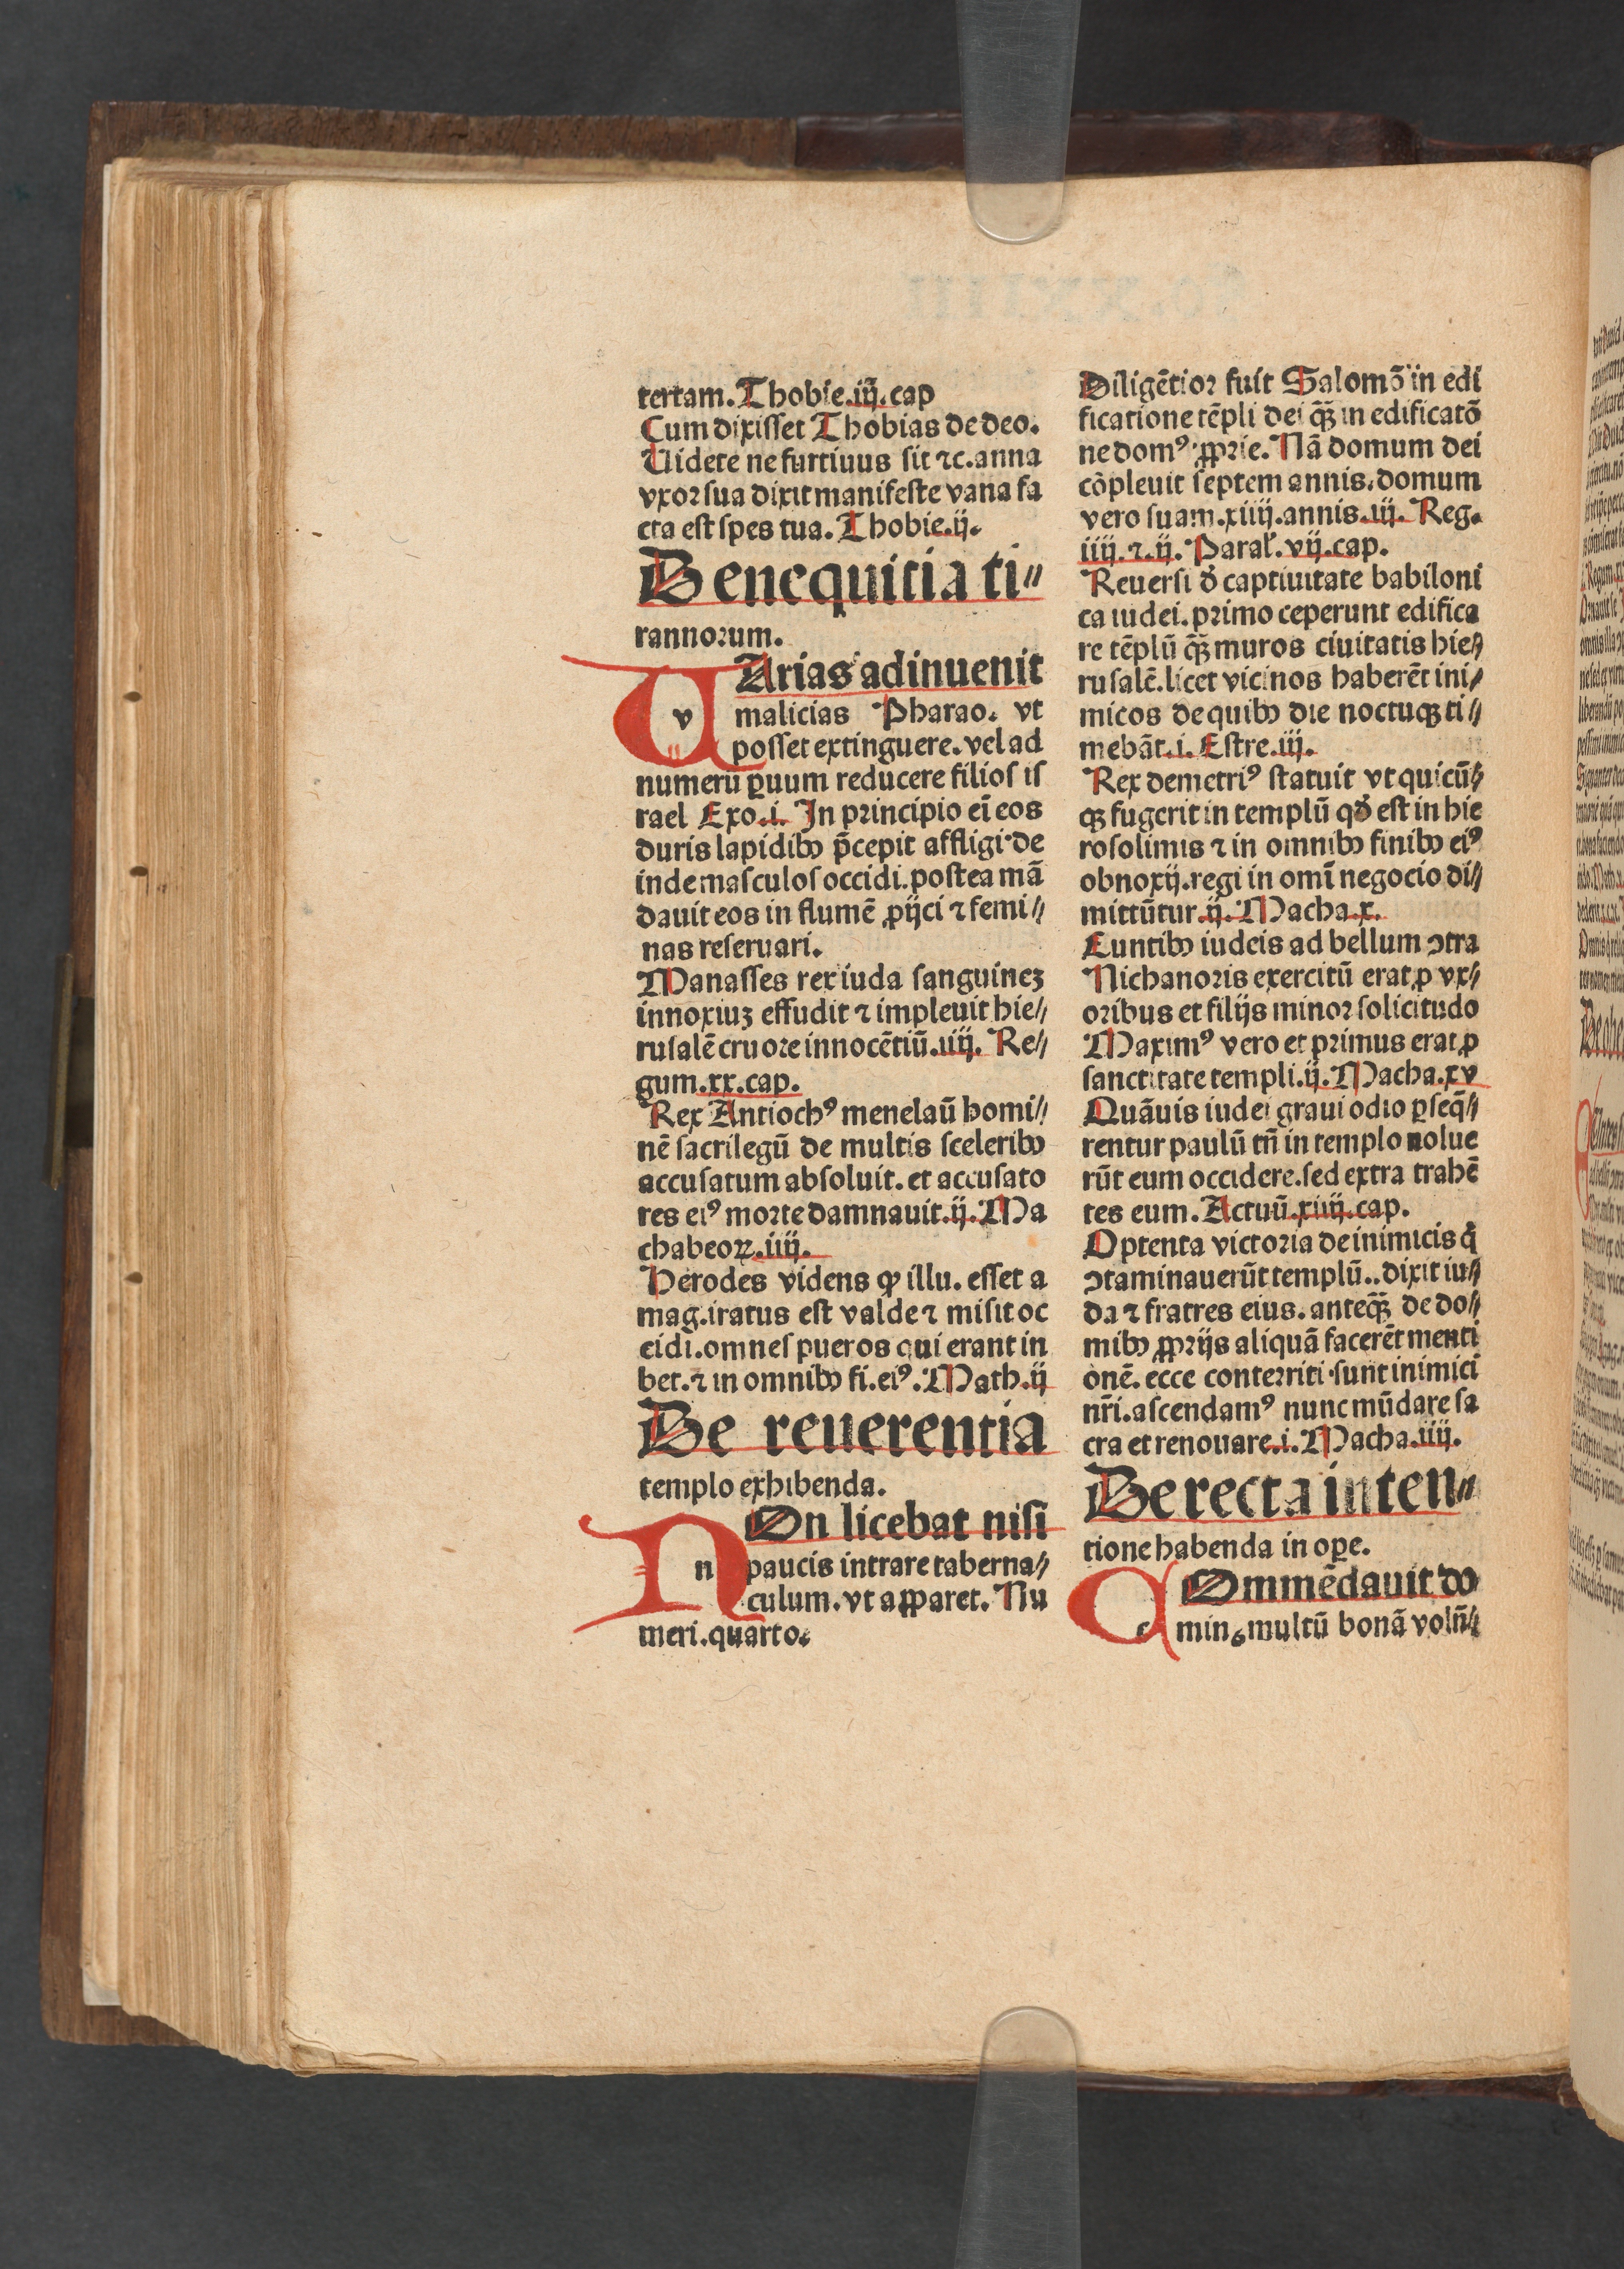 tertam. Thobie.iij.cap
Cum dixisset Thobias de deo.
Uidete ne furtiuus sit ⁊c. anna
vxor sua dixit manifeste vana fa
cta est spes tua. Thobie.ij.
De nequitia ti⸗
rannorum.
v Arias adinuenit
malicias Pharao. vt
posset extinguere. vel ad
numerū ꝑuum reducere filios is
rael Exo.i. In principio eī eos
duris lapidibꝰ p̄cepit affligi. de
inde masculos occidi. postea mā
dauit eos in flumē ꝓijci ⁊ femi⸗
nas reseruari.
Manasses rex iuda sanguinez
innoxiuz effudit ⁊ impleuit hie⸗
rusalē cruore innocētiū.iiij. Re⸗
gum.xx.cap.
Rex Antiochꝰ menelaū homi⸗
nē sacrilegū de multis sceleribꝰ
accusatum absoluit. et accusato
res eiꝰ morte damnauit.ij. Ma
chabeoꝝ.iiij.
Herodes videns ꝙ illu. esset a
mag. iratus est valde ⁊ misit oc
cidi. omnes pueros qui erant in
bet. ⁊ in omnibꝰ fi. eiꝰ. Math.ij
De reuerentia
templo exhibenda.
n On licebat nisi
paucis intrare taberna⸗
culum. vt apparet. Nu
meri. quarto.
Diligētior fuit Salomō in edi
ficatione tēpli dei q̄ꝫ in edificatō
ne domꝰ ꝓprie. Nā domum dei
cōpleuit septem annis. domum
vero suam.xiiij. annis.iij. Reg.
iiij. ⁊.ij. Paral̕.vij.cap.
Reuersi ď captiuitate babiloni
ca iudei. primo ceperunt edifica
re tēplū q̄ꝫ muros ciuitatis hie⸗
rusalē. licet vicinos haberēt ini⸗
micos de quibꝰ die noctuqꝫ ti⸗
mebāt.i. Estre.iij.
Rex demetriꝰ statuit vt quicū⸗
qꝫ fugerit in templū qď est in hie
rosolimis ⁊ in omnibꝰ finibꝰ eiꝰ
obnoxij. regi in omī negocio di⸗
mittūtur.ij. Macha.x.
Euntibꝰ iudeis ad bellum ↄtra
Nichanoris exercitū erat ꝓ vx⸗
oribus et filijs minor solicitudo
Maximꝰ vero et primus erat ꝓ
sanctitate templi.ij. Macha.xv
Quāuis iudei graui odio ꝑseq̄⸗
rentur paulū tn̄ in templo nolue
rūt eum occidere. sed extra trahē
tes eum. Actuū.xiiij.cap.
Optenta victoria de inimicis q̄
ↄtaminauerūt templū.. dixit iu⸗
da ⁊ fratres eius. anteq̄ꝫ de do⸗
mibꝰ ꝓprijs aliquā facerēt menti
onē. ecce conterriti sunt inimici
nr̄i. ascendamꝰ nunc mūdare sa
cra et renouare.i. Macha.iiij.
De recta inten⸗
tione habenda in oꝑe.
c Ommēdauit do
minꝰ multū bonā volū⸗